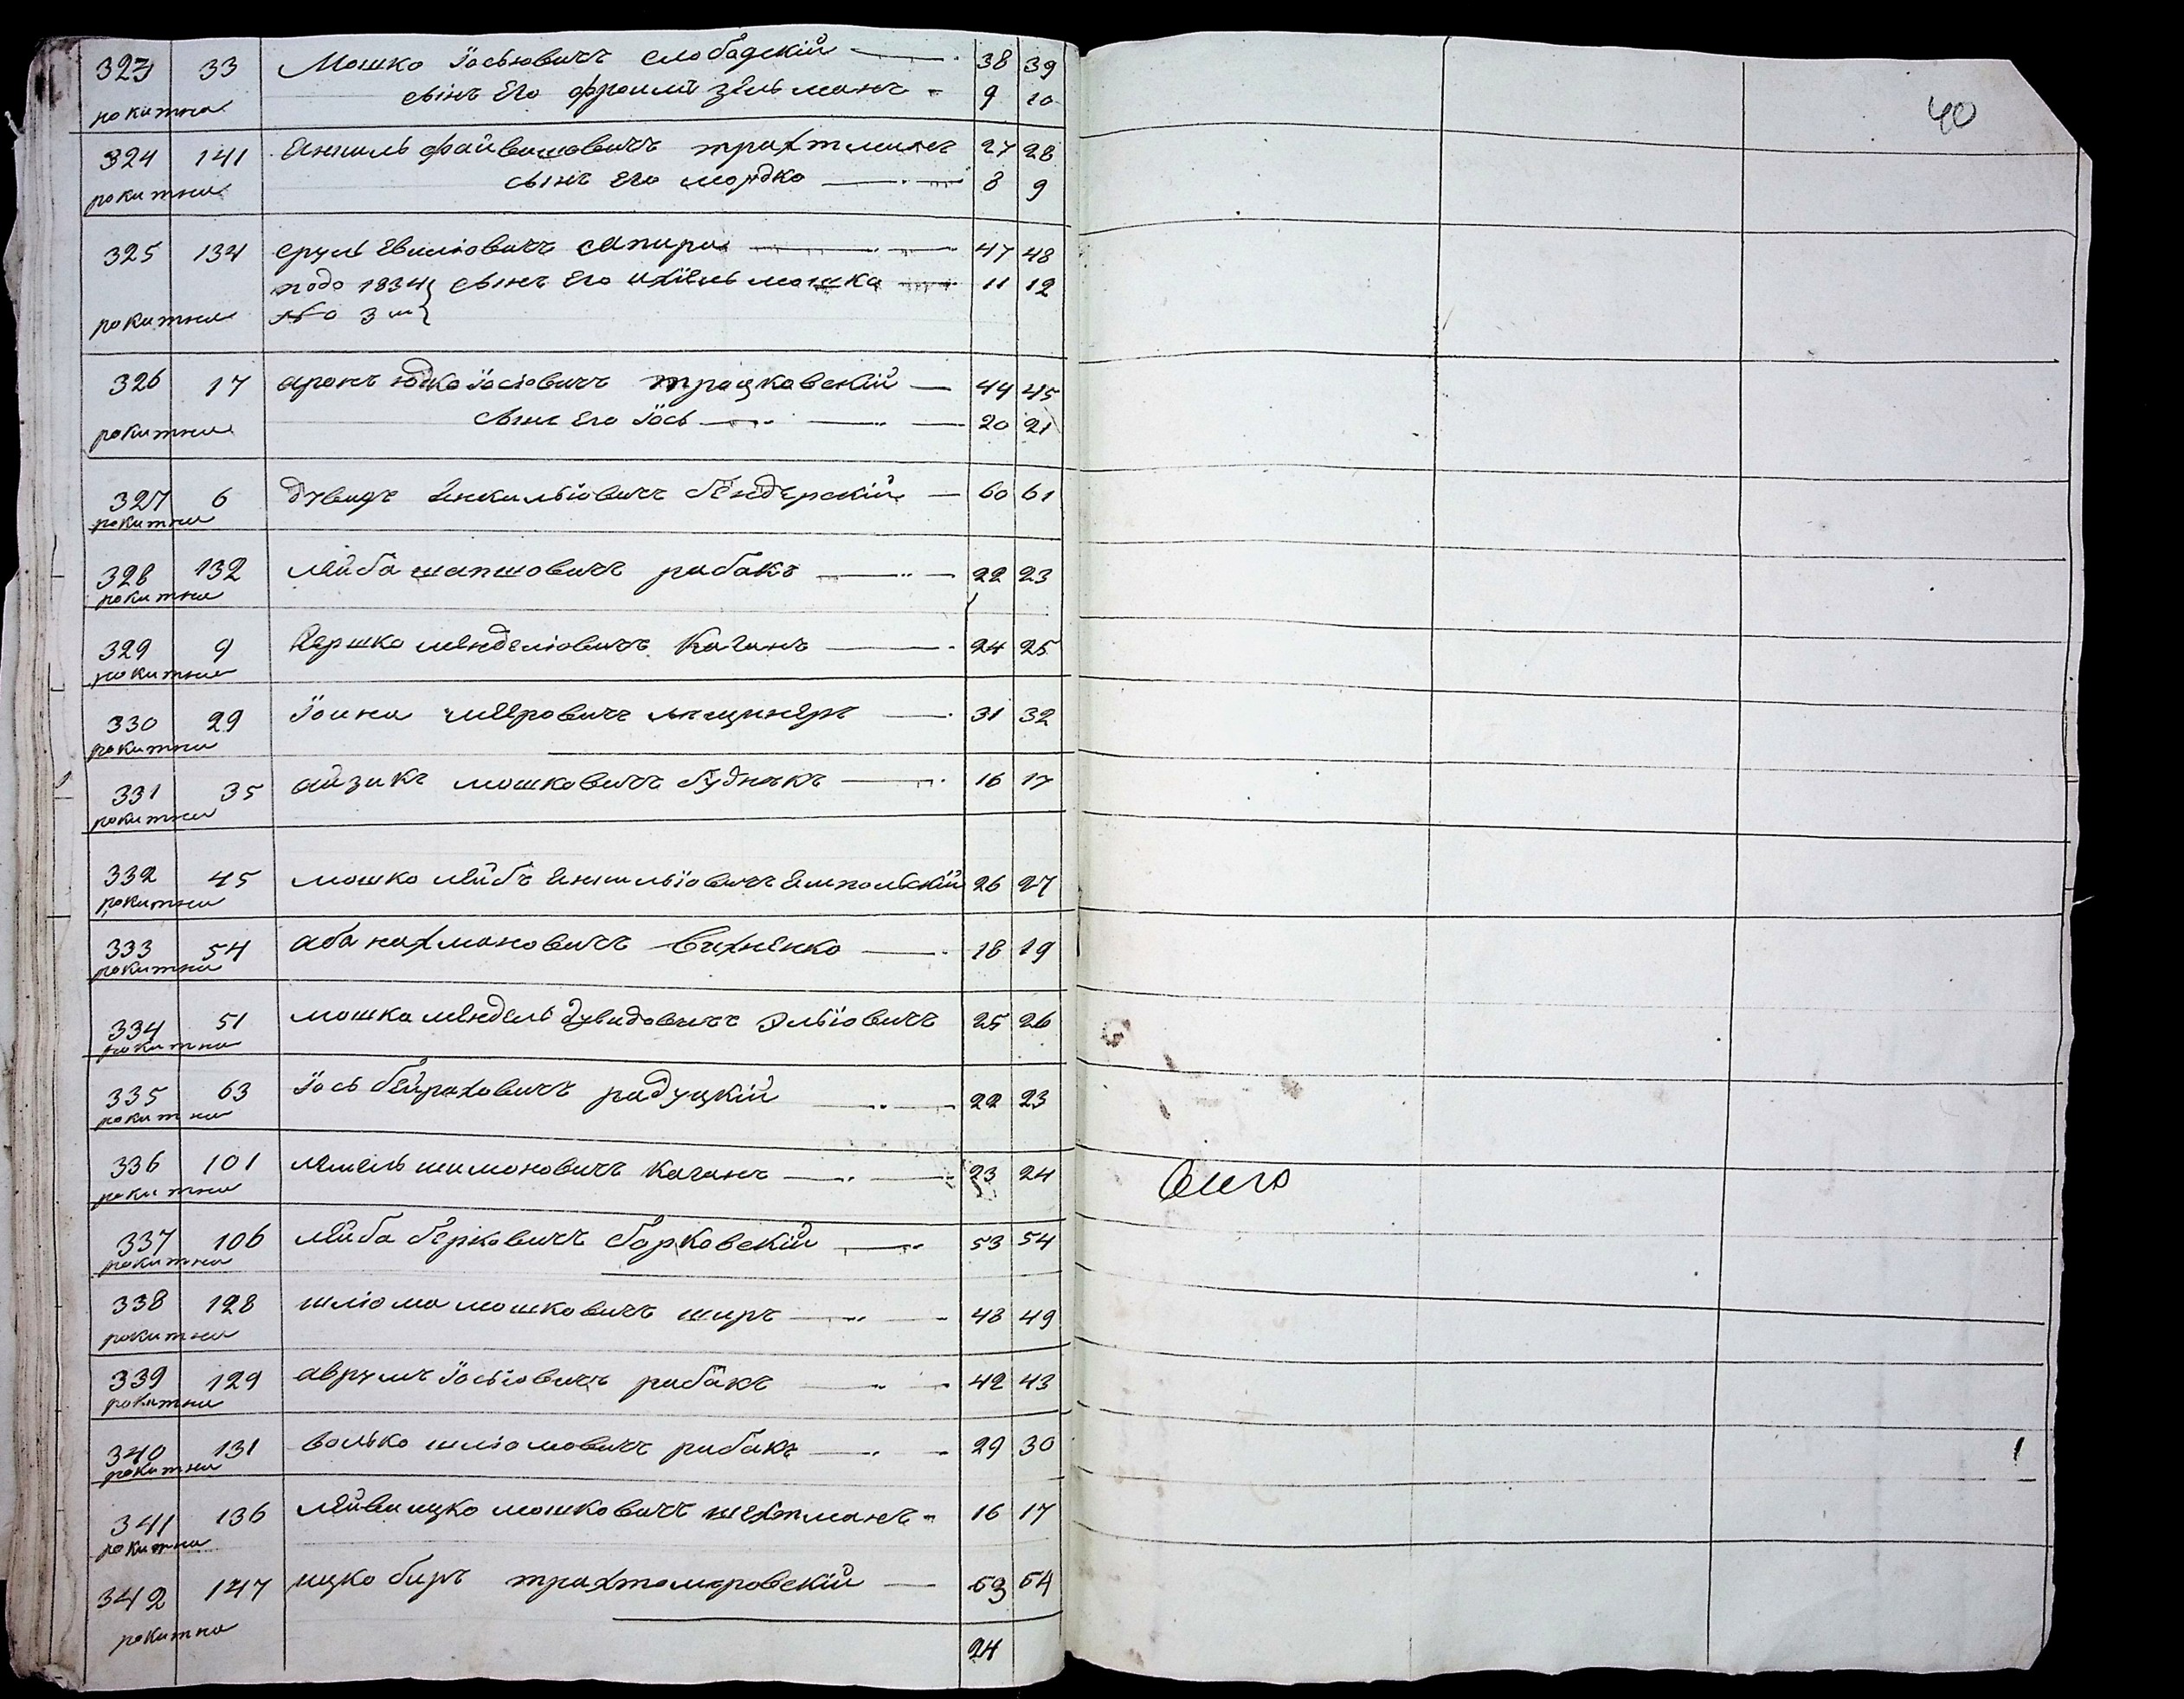 323 33 Мошко Іосьовичъ Слободскій 38 39
сынъ Его Фроимъ Зельманъ 9 10
рокитна
324 141 Янкиль Файвишовичъ Трахтманъ 27 28
сынъ Его мордко 8 9
рокитна
325 134 Сруль Сапира 47 48
1834 сынъ Его мошка 11 12
рокитна № 3
326 17 аронъ Юдко Іосіовичъ 44 45
сынъ Его Іось 20 21
рокитна
327 6 дувидъ Янкильіовичъ бендерскій 60 61
рокитна
328 132 лейба шапшовичъ рабакъ 22 23
рокитна
329 9 Гершко мендельовичъ Каганъ 24 25
рокитна
330 29 Іоина меровичъ 31 32
рокитна
331 35 айзикъ мошковичъ буднякъ 16 17
рокитна
332 45 мошко лейбъ Ямпольскій 26 27
рокитна
333 54 аба нахмановичъ Вахненко 18 19
рокитна
334 51 мошка мендель дувидовичъ Эльіовичъ 25 26
рокитна
335 63 Іось бейраховичъ радуцкій 22 23
рокитна
336 101 лемель шимоновичъ Каганъ 23 24
рокитна
337 106 лейба берковичъ борковскій 53 54
рокитна
338 128 шліома мошковичъ ширъ 48 49
рокитна
339 129 аврумъ Іосьіовичъ рабакъ 42 43
рокитна
340 131 волько шліомовичъ рабакъ 29 30
рокитна
341 136 ицко мошковичъ шехтманъ 16 17
рокитна
342 147 ицко беръ трахтомировскій 53 54
рокитна
24
40
1